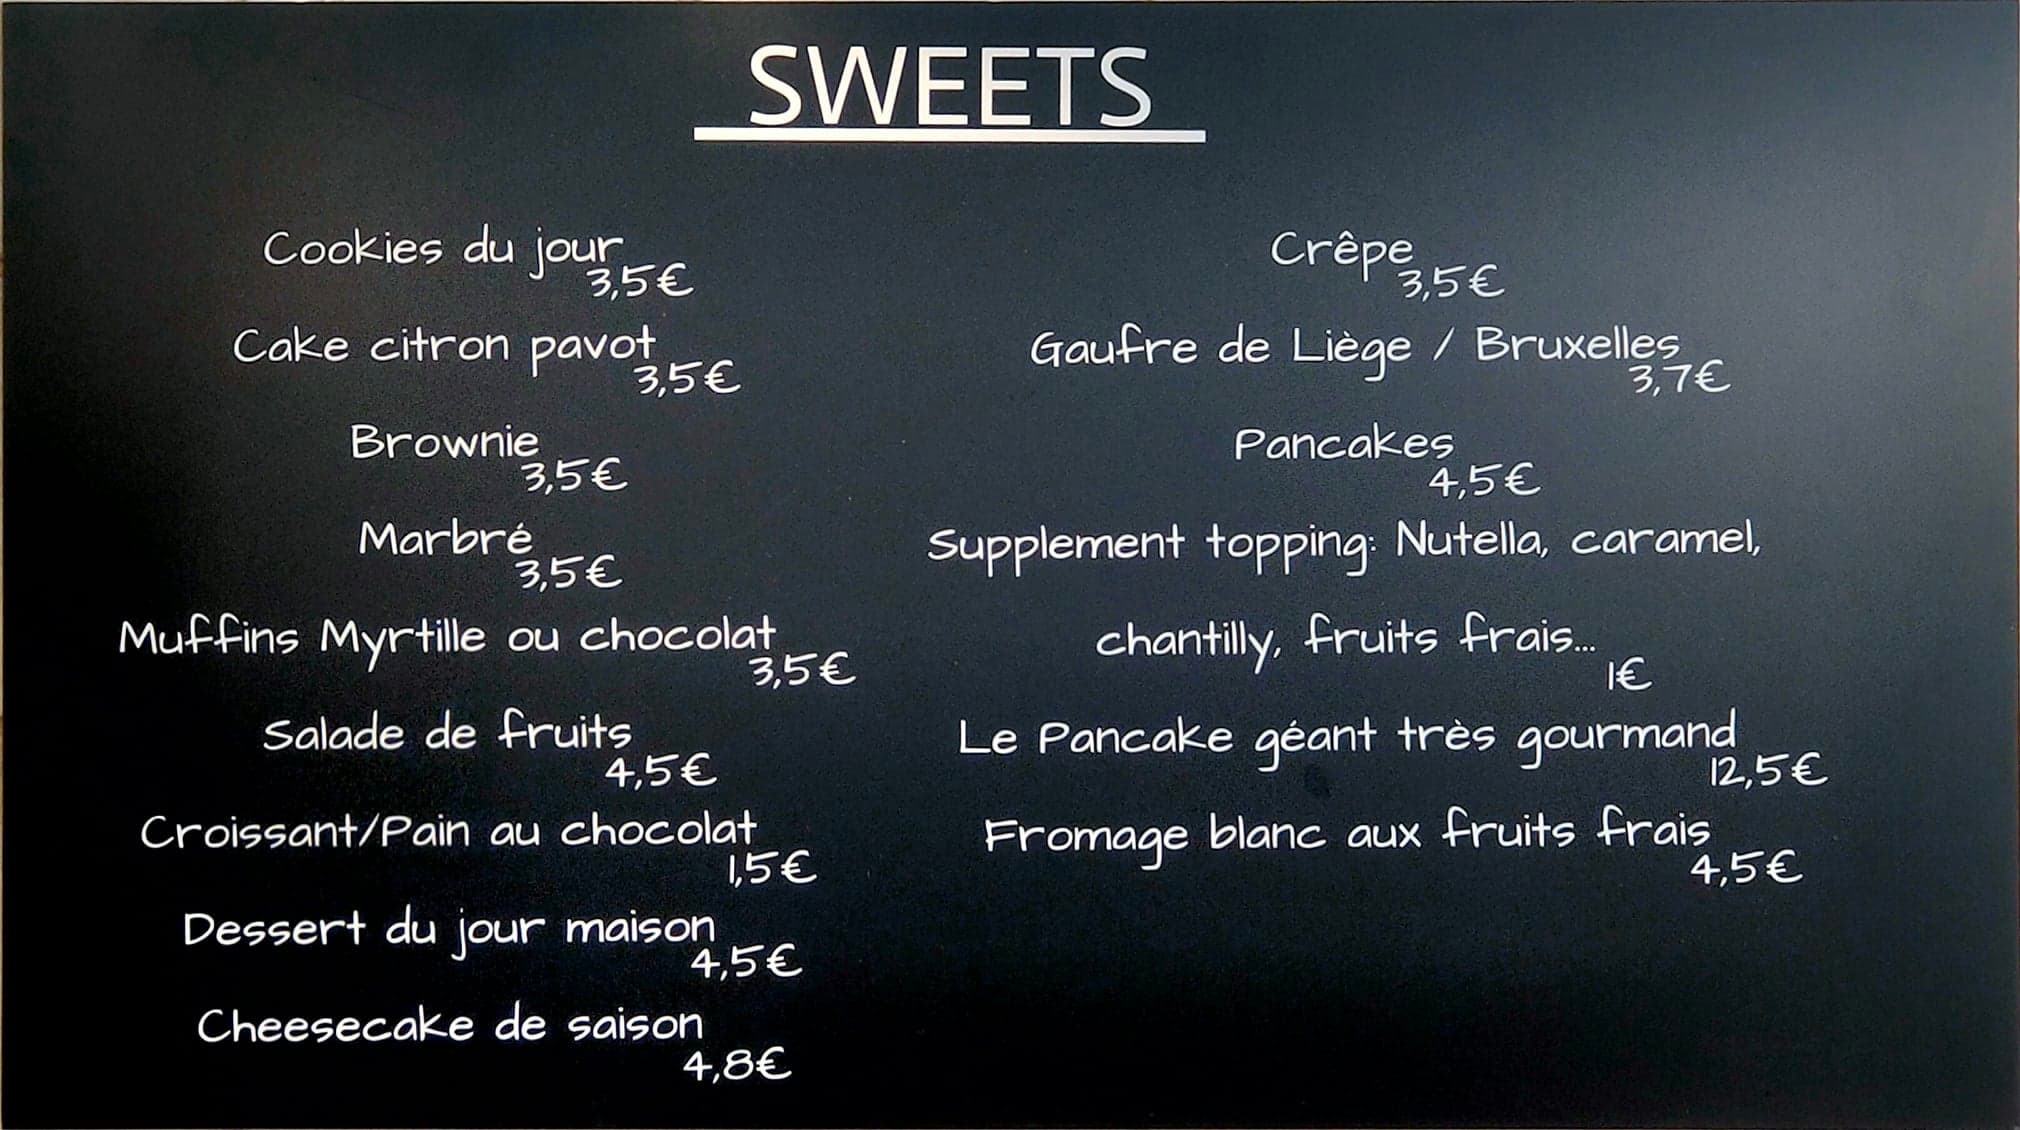 SWEETS
Cookies du jour
3,5€
Cake citron pavot
3,5€
Brownie
3,5€
Marbré
3,5€
Muffins Myrtille ou chocolat
3,5€
Salade de fruits
4,5€
Croissant/Pain au chocolat
1,5€
Dessert du jour maison
4,5€
Cheesecake de saison
4,8€
Crêpe
3,5€
Gaufre de Liège / Bruxelles
3,7€
Pancakes
4,5€
Supplement topping: Nutella, caramel,
chantilly, fruits frais...
1€
Le Pancake géant très gourmand
12,5€
Fromage blanc aux fruits frais
4,5€